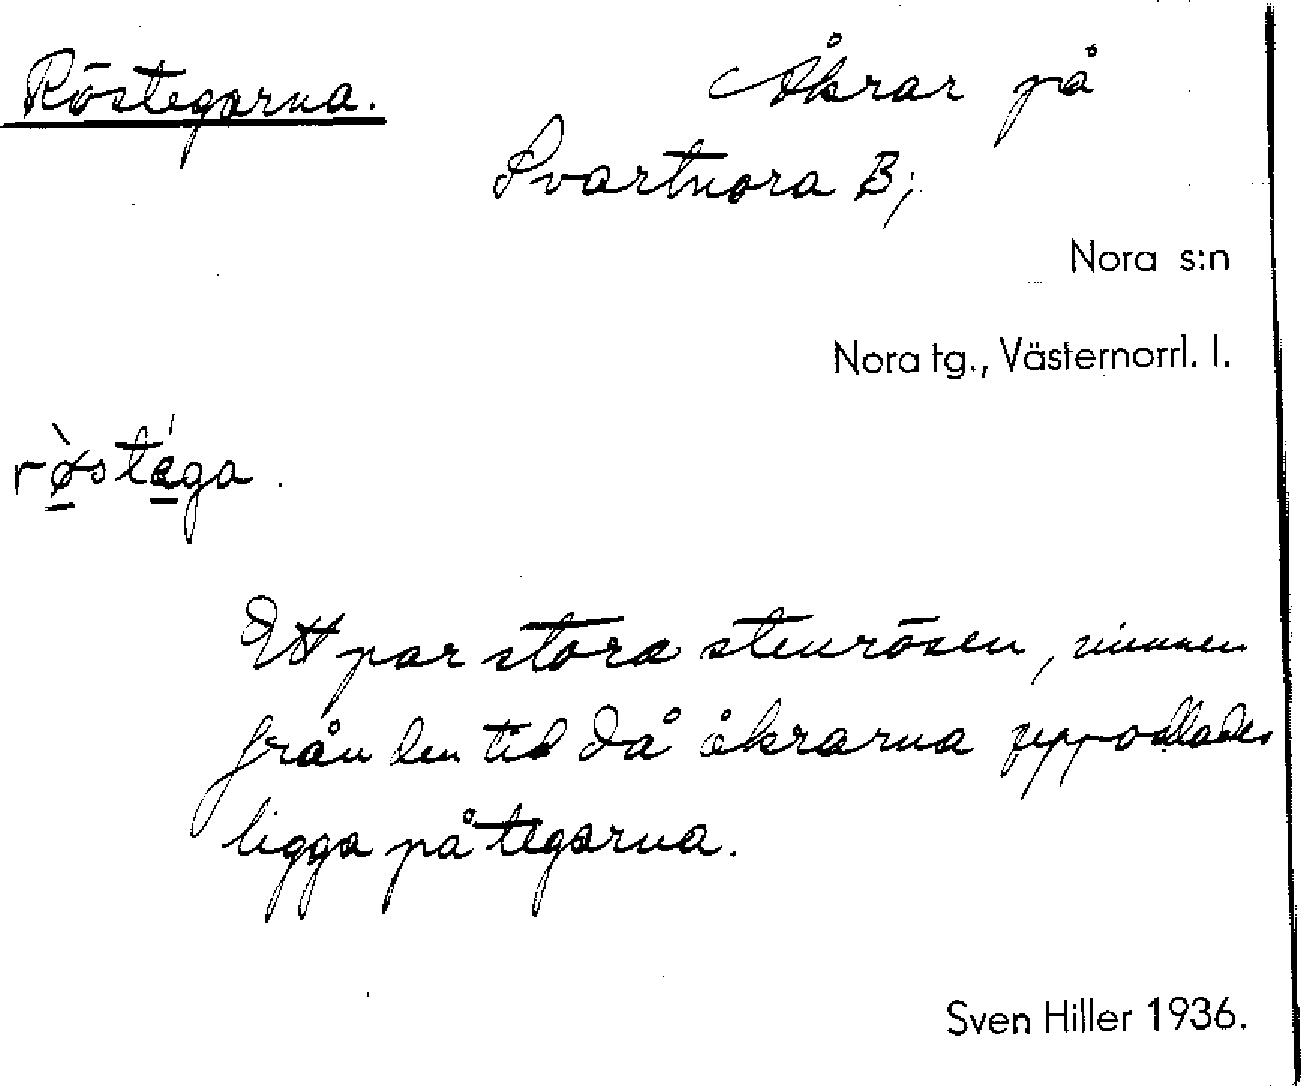 Röstegarna.
Åkrar på
Svartnora B;
Nora s:n
Nora tg., Västernorrl. l.
rø̀stéga.
Ett par stora stenrösen, minnen
från den tid då åkrarna uppodlades
ligga på tegarna.
Sven Hiller 1936.